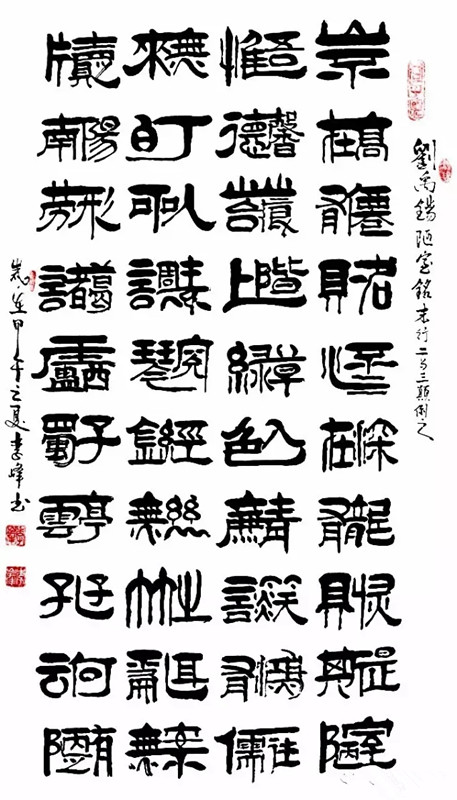 劉禹錫陋室銘末行二与三顛倒之
山不在高有僊則名水不在深有龍則靈斯是陋室
惟吾德馨苔痕上階綠草色入簾青談笑有鴻儒往
來無白丁可以調素琴閱金經無絲竹之亂耳無案
牘之南陽勞形諸葛廬西蜀子雲亭孔子云何陋之有
歲在甲午之夏李峰書